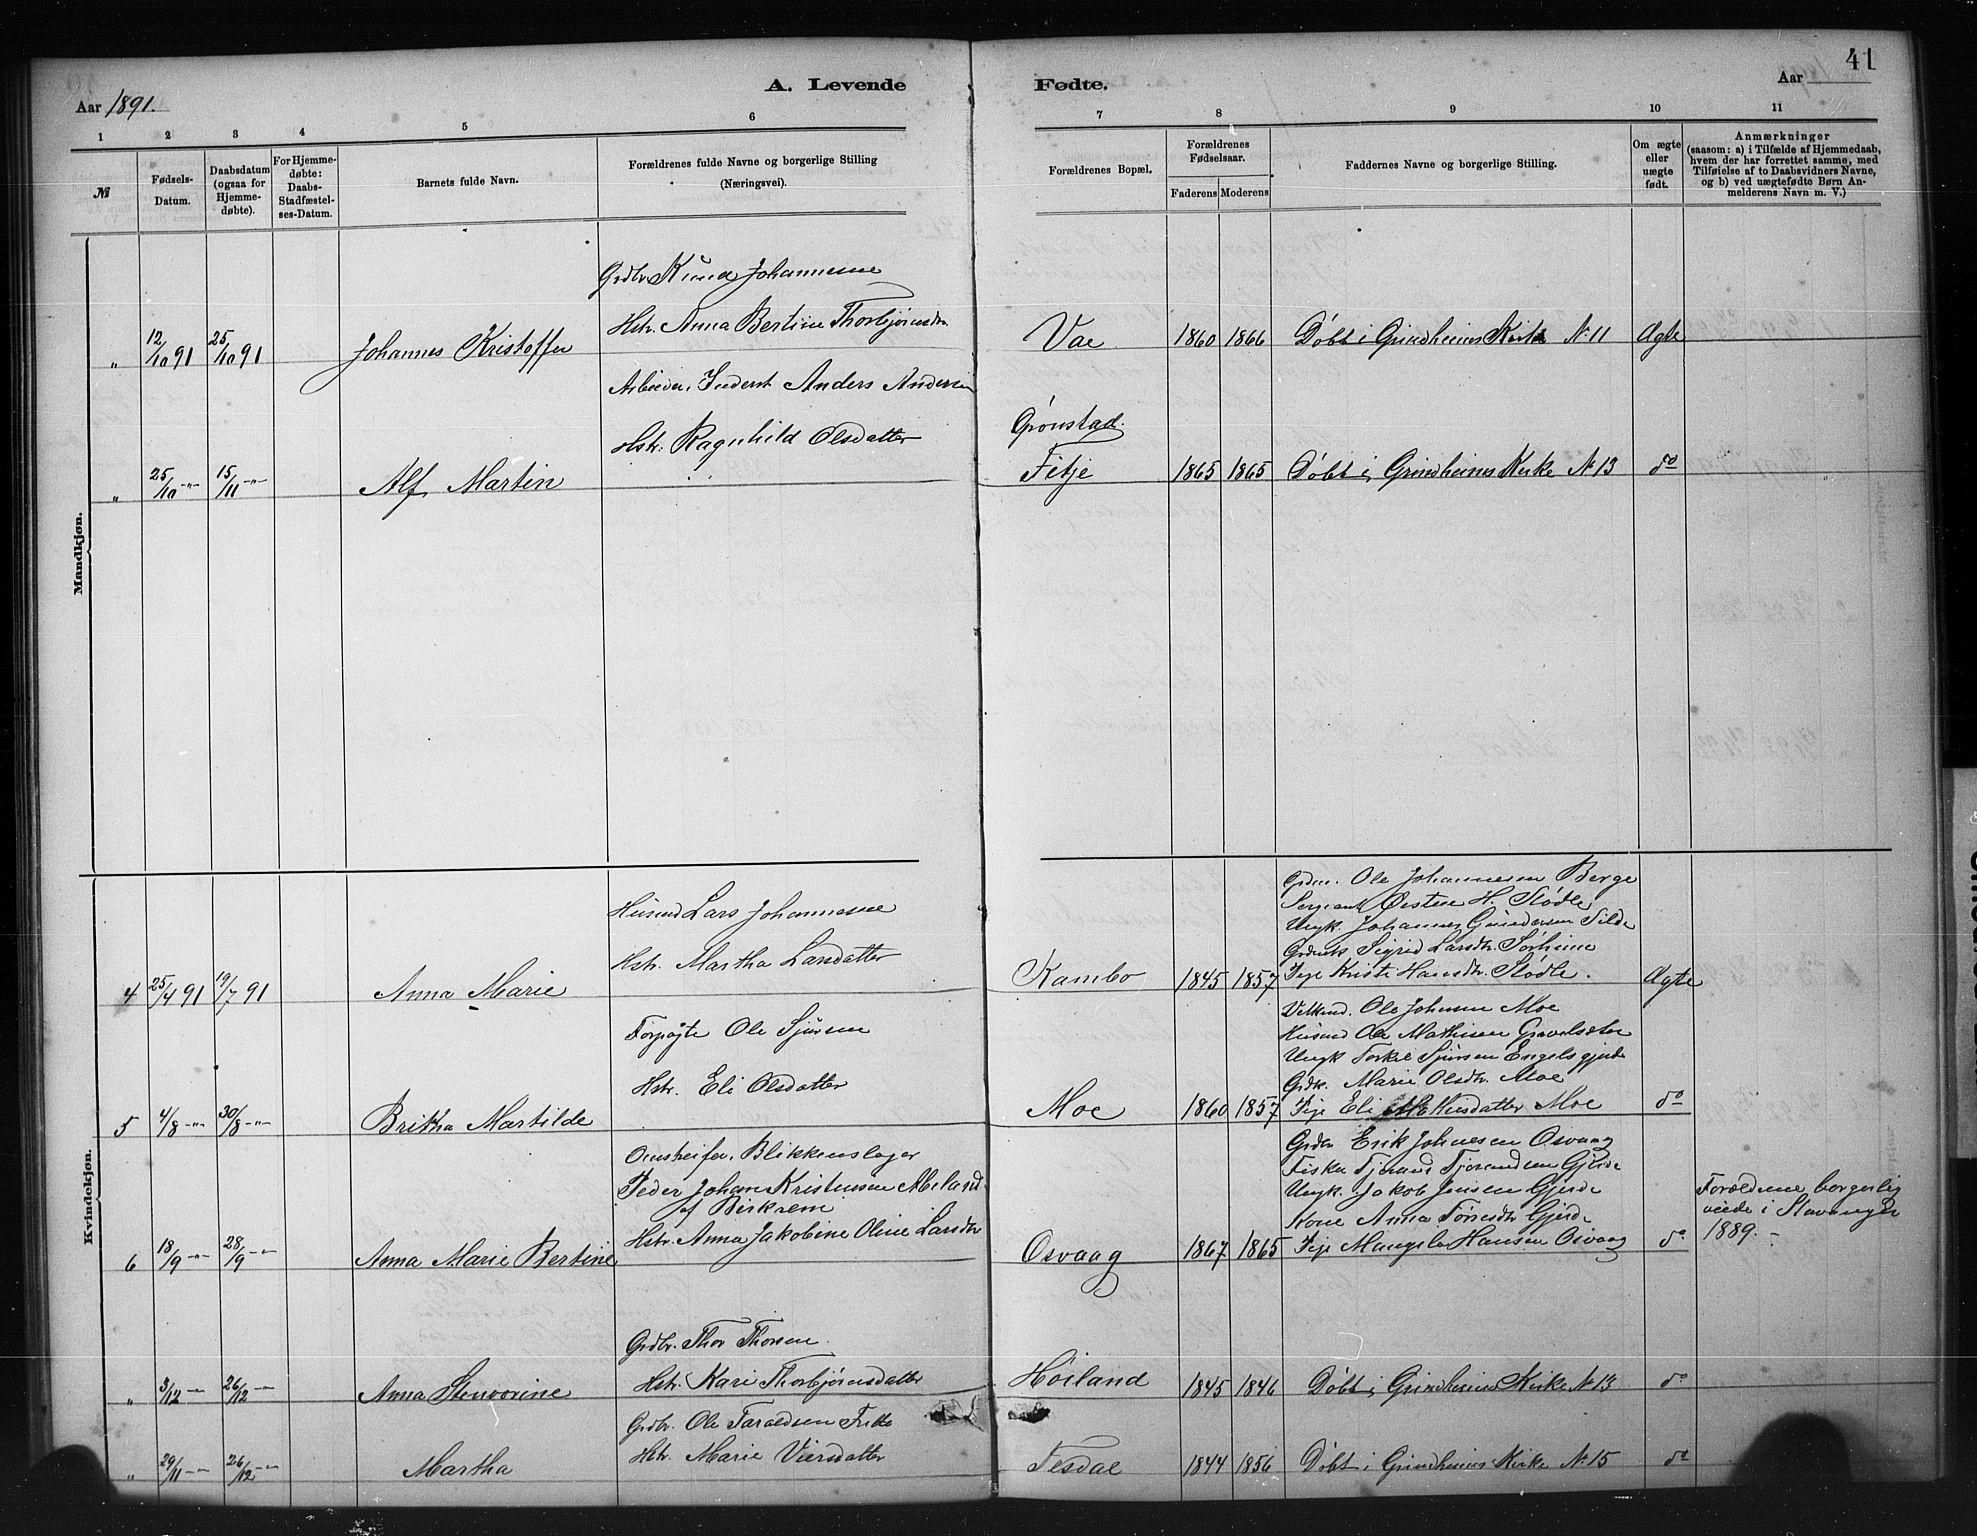 Aar 1891.
A. Levende Fødte.
Aar
41
1 2 3 4 5 6 7 8 9 10 11
№
Fødsels-Datum.
Daabsdatum (ogsaa for Hjemme-døbte).
For Hjemme-døbte: Daabs-Stadfæstel-ses-Datum.
Barnets fulde Navn.
Forældrenes fulde Navne og borgerlige Stilling (Næringsvei).
Forældrenes Bopæl.
Forældrenes Fødselsaar.
Faderens Moderens
Faddernes Navne og borgerlige Stilling.
Om ægte eller uægte født.
Anmærkninger (saasom: a) i Tilfælde af Hjemmedaab, hvem der har forrettet samme, med Tilføielse af to Daabsvidners Navne, og b) ved uægtefødte Børn An-melderens Navn m. V.)
Mandkjøn.
Grdbr. Knud Johannesen
Hstr. Anna Bertine Thorbjørnsdtr.
" 12/10 91 25/10 91 Johannes Kristoffer
Vae 1860 1866 Døbt i Grindheims Kirke № 11 Ægte
Arbeider, Inderst Anders Andersen
Hstr. Ragnhild Olsdatter
" 25/10 -"- 15/11 -"- Alf Martin
Grønstad.
Fitje 1865 1865 Døbt i Grindheims Kirke № 13 do
Kvindekjøn.
Husmd Lars Johannesen
Hstr. Martha Larsdatter
4 25/4 91 19/7 91 Anna Marie
Kambo 1845 1857
Ole Johannesen Berge
Sergeant Østen H. Stødle
Ungk. Johannes Gundersen Silde
Sigrid Larsdtr. Sørheim
Pige Kristi Hansdtr. Stødle.
Ægte
Ole Sjursen
Hstr. Eli Olsdatter
5 4/8 -"- 30/8 -"- Britha Martilde
Moe 1860 1857
Ole Johnsen Moe
Husmd Ole Mathisen
Ungk Torkel Sjursen Engelsgjerde
Grdk. Marie Olsdtr. Moe
Pige Eli Mathisdatter Moe
do
Omstreifer, Blikkenslager
Peder Johan Kristensen Meland
af Birkrem
Hstr. Anna Jakobine Oline Larsdtr
6 18/9 -"- 28/9 -"- Anna Marie Bertine
Osvaag 1867 1865
Erik Johnesen Osvaag
Tjerand Tjerandsen Gjerde
Ungk. Jakob Jensen Gjerde
Kone Anna Gjerde
Pige Hansen Osvaag
do
Forældrene borgerlig
viede i Stavanger
1889. -
Grdbr. Thor Thorsen
Hstr. Kari Thorbjørnsdatter
" 3/12 -"- 26/12 -"- Anna Stenvorine
Høiland 1845 1846 Døbt i Grindheims Kirke № 13 do
Grdbr. Ole Taraldsen
Hstr. Marie Viersdatter
" 29/11 -"- 26/12 -"- Martha
Tesdal 1844 1856 Døbt i Grindheims Kirke № 15 do